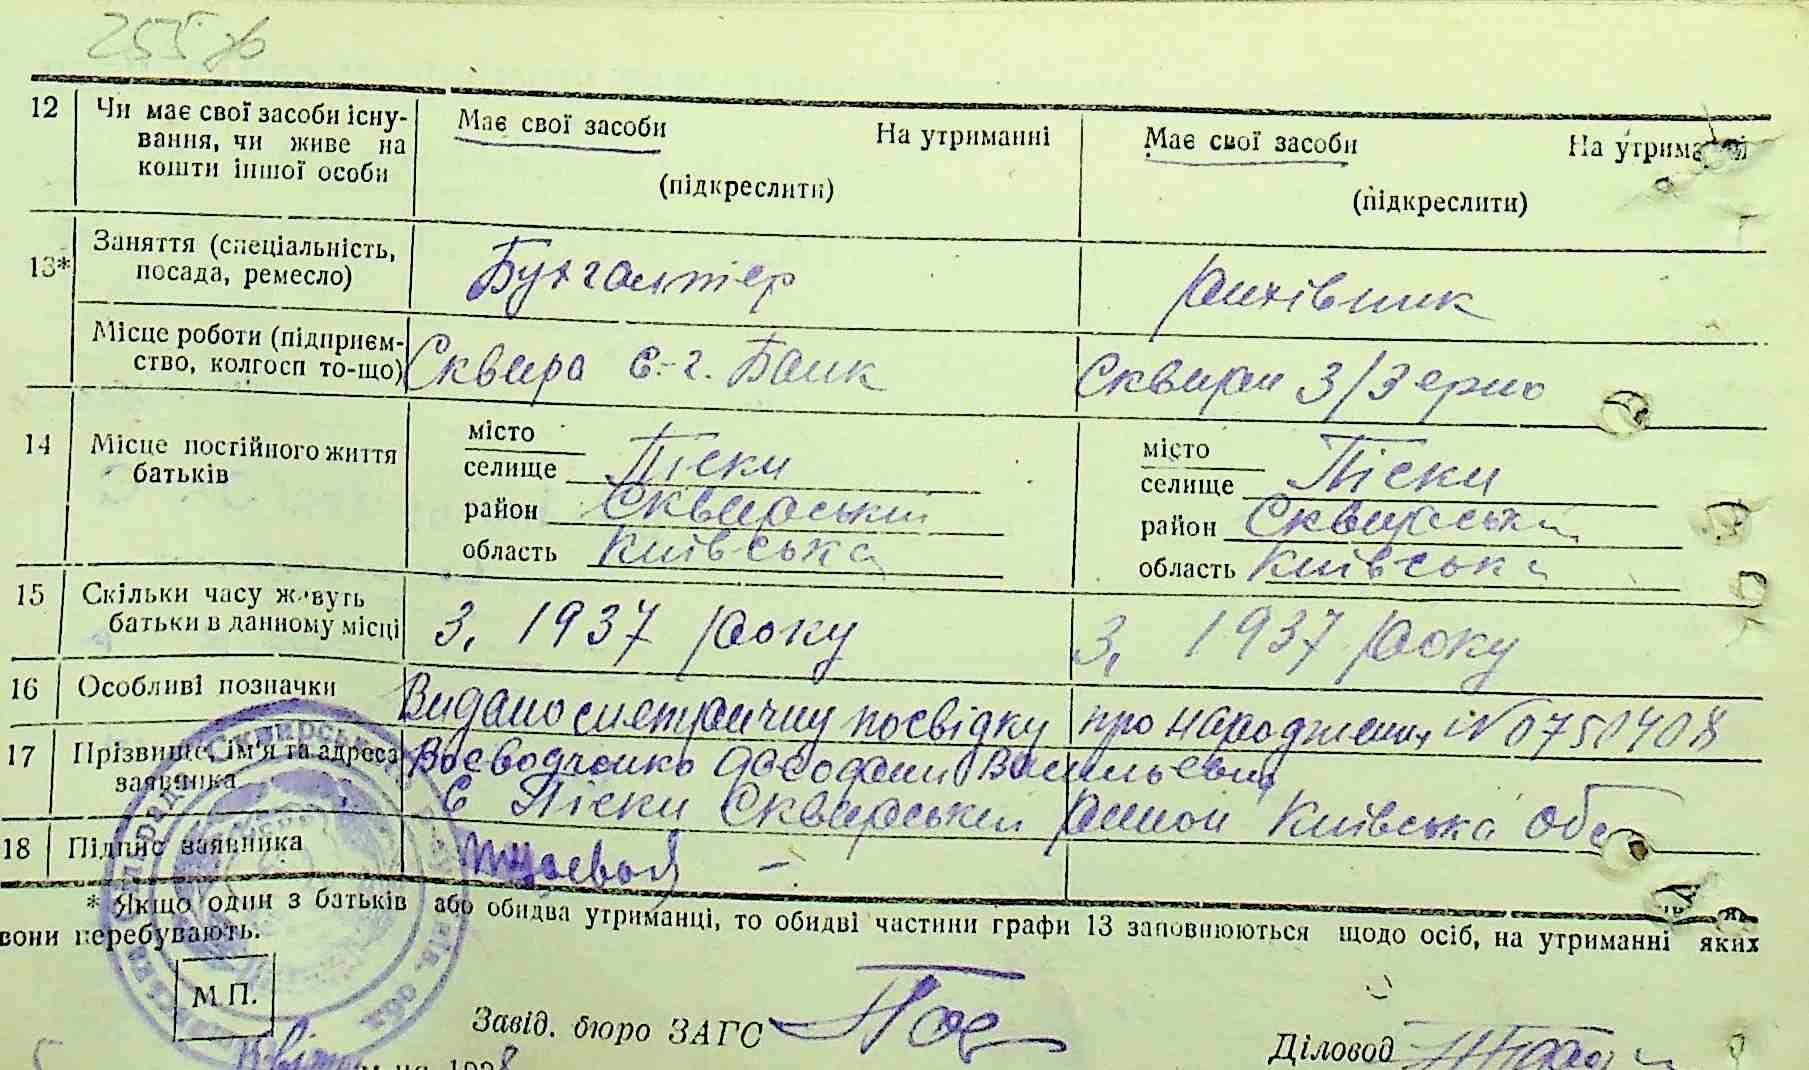 255 зв
12 Чи має свої засоби існу- Має свої засоби На утриманні Має свої засоби На утрима
вання, чи живе на
кошти іншої особи (підкреслити) (підкреслити)
13* Заняття (спеціальність, Бухгалтер рахівник
посада, ремесло)
Місце роботи (підприєм- Сквира с.-г. Банк Сквира З/Зерно
ство, колгосп то-що)
14 Місце постійного життя місто місто
батьків селище Піски селище Піски
район Сквирський район Сквирська
область Київська область Київська
15 Скільки часу живуть З. 1937 року З. 1937 року
батьки в данному місці
16 Особливі позначки Видано метричну посвідку про народження №0750408
17 Прізвище, ім'я та адреса
заявника С Піски Сквирський район Київська Обл
18 Підпис заявника
* Якщо один з батьків або обидва утриманці, то обидві частини графи 13 заповнюються щодо осіб, на утриманні яких
вони перебувають.
М.П.
Завід. бюро ЗАГС
Діловод